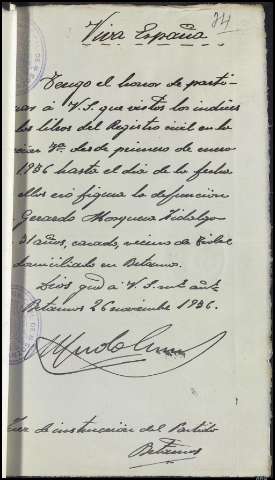 24
Viva España
Tengo el honor de partici-
par á V.S. que vistos los indices
los libros del Registro civil en la
sección 3ª. desde primero de enero
1936 hasta el dia de la fecha
ellos no figura la defunción
Gerardo Mosquera Hidalgo
31 años, casado, vecino de
domiciliado en Betanzos
Dios gud á V.S. ms. ans.
Betanzos 26 noviembre 1936.
Juez de instrucción del Partido
Betanzos